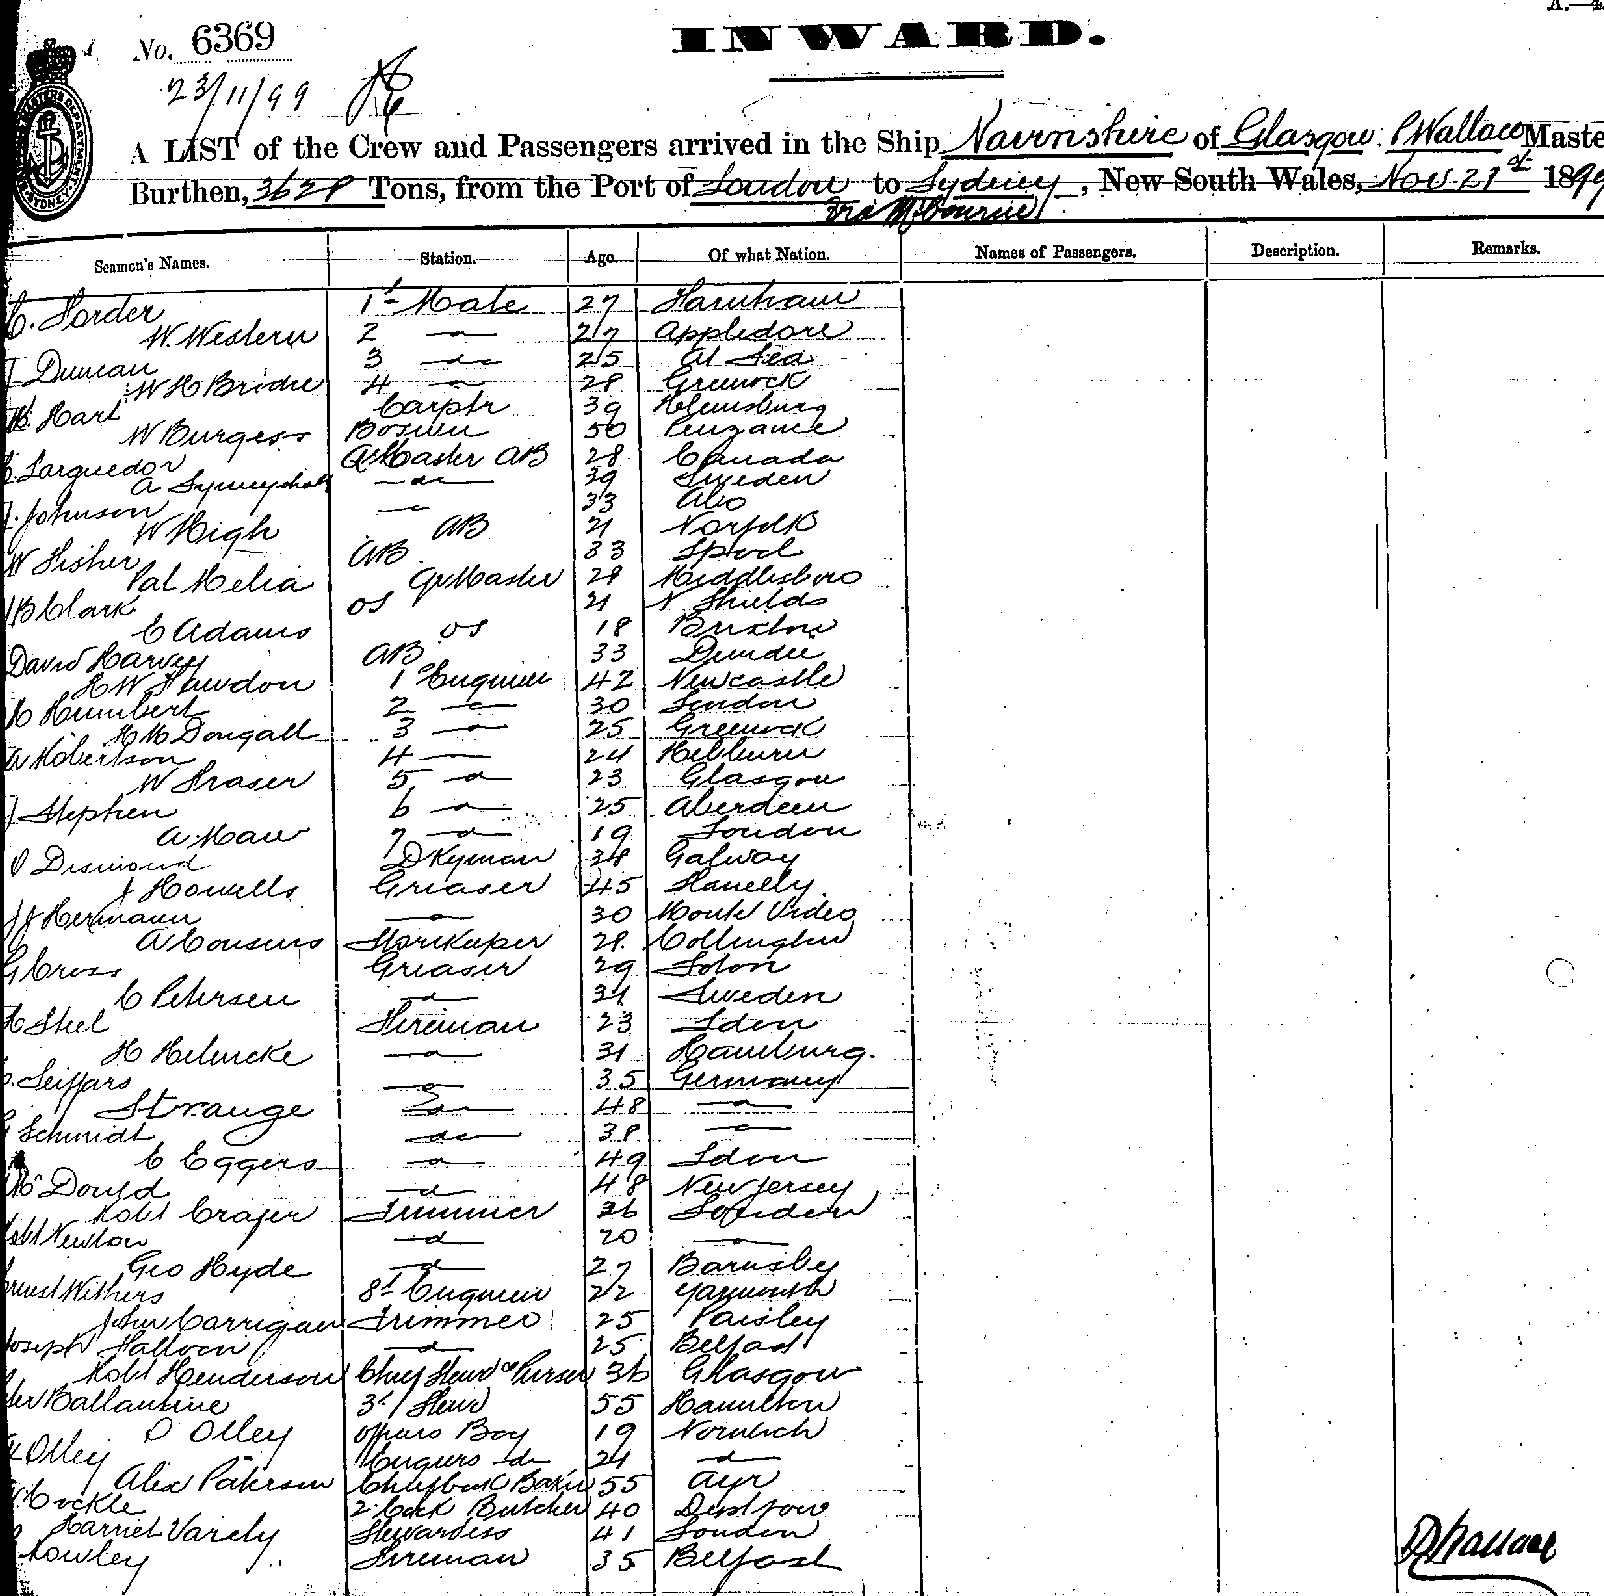 A.—4
No. 6369
INWARD.
23/11/99
A LIST of the Crew and Passengers arrived in the Ship Nairnshire of Glasgow. P Wallace Maste
Burthen, 3628 Tons, from the Port of London to Sydney, New South Wales, Nov. 21st 1899
via Melbourne
Seamen's Names. Station. Age. Of what Nation. Names of Passengers. Description. Remarks.
Horder 1st Mate 27 Farnham
W. Western 2 27 Appledore
Duncan 3 do 25 At Sea
W H Brodie 4 28 Greenock
Hart Carptr 39 Helensburg
W Burgess Bosun 50 Penzance
QMaster AB 28 Canada
A do 29 Sweden
Johnson 33 Abo
W High AB 21 Norfolk
W Fisher AB 33 Lpool
Pat Melia QrMaster 28 Middlesboro
Clark OS 21 N Shields
C Adams OS 18 Brixton
David Harvey AB 33 Dundee
H W 1st Engineer 42 Newcastle
H Humbert 2 30 London
McDougall 3 25 Greenock
A Robertson 4 24 Hebburn
W Fraser 5 23 Glasgow
J Stephen 6 25 Aberdeen
A Maw 7 19 London
Desmond DKyman 38 Galway
J Howells Greaser 45 Llanelly
Hermann 30 Monte Video
A Cousins Storekeeper 28 Collington
G Cross Greaser 29 Ldon
C Petersen 31 Sweden
Steel Fireman 23 Ldon
H Helmcke 31 Hamburg.
Seiffars 35 Germany
Strange 48
Schmidt do 38
C Eggers 49 Ldon
48 New Jersey
Robt Trimmer 36 London
Robt Newton 20
Geo Hyde 27 Barnsley
Ernest Withers 8th Engineer 22 Yarmouth
John Carrigan Trimmer 25 Paisley
Joseph Fallon 25 Belfast
Robt Henderson Chief Stewd & Purser 36 Glasgow
Ballantine 3rd Stewd 55 Hamilton
D Olley Officers Boy 19 Norwich
Olley Engineers do 21
Alex Paterson Chief Cook Baker 55 Ayr
Cockle 2 Cook Butcher 40
Harriet Varely Stewardess 41 London
Rowley Fireman 35 Belfast
P Wallace